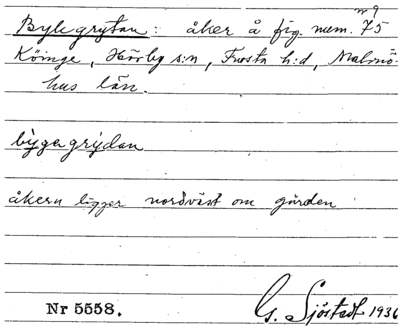 nr 9
Bylegrytan: åker å fig. num. 75
Köinge, Hörby s:n, Frosta h:d, Malmö-
hus län.
bỳgagrýdan
åkern ligger nordväst om gården
Nr 5558.
G. Sjöstedt 1936